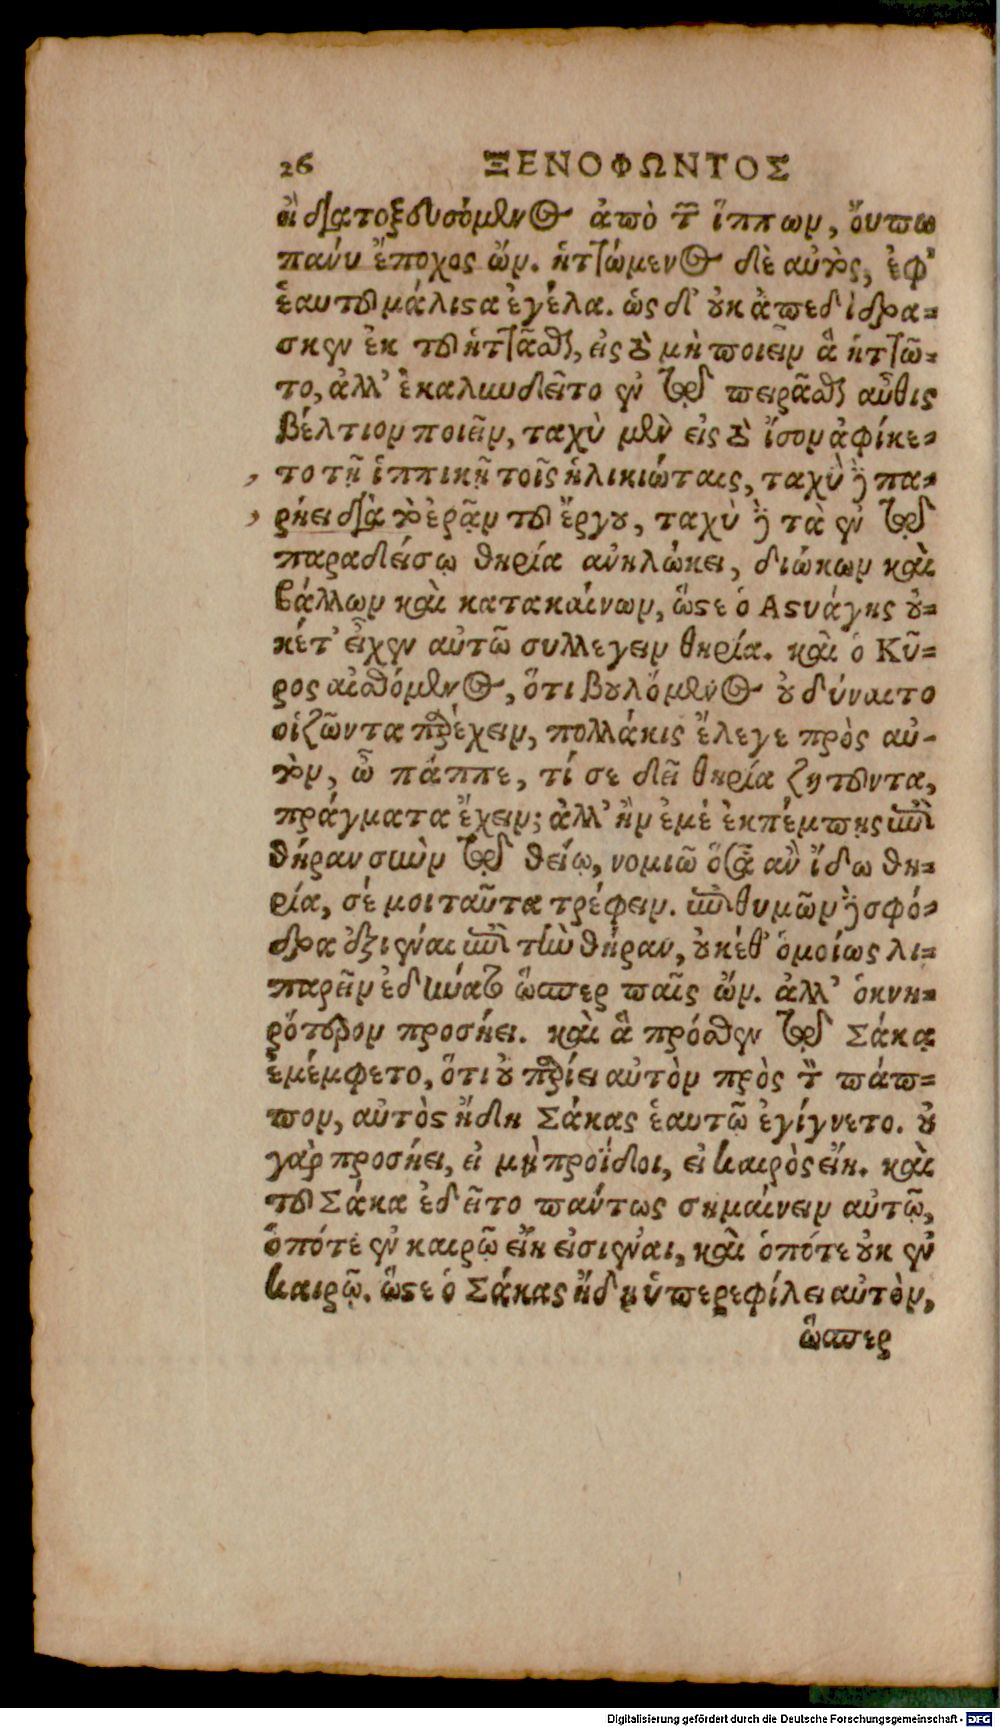 26 ΞΕΝΟΦΩΝΤΟΣ
ἢ διατοξευσόμενος ἀπὸ τῶν ἵππων, ὄυπω
πανύ ἔποχος ὤν. ἡττώμενος δὲ αὐτὸς, ἐφ'
ἑαυτοῦ μάλιστα ἐγέλα. ὡς δ' οὐκ ἀπεδίδρα-
σκεν ἐκ τοῦ ἡττᾶσθαι, εἰς τὸ μὴ ποιεῖν ἃ ἡττῶ-
το, ἀλλ' ἐκαλινδεῖτο ἐν τῷ πειρᾶσθαι αὖθις
βέλτιον ποιεῖν, ταχὺ μὲν εἰς τὸ ἴσον ἀφίκε-
το τῇ ἱππικῇ τοῖς ἡλικιώταις, ταχὺ δὲ πα-
ρήει διὰ τὸ ἐρᾷν τοῦ ἔργου, ταχὺ δὲ τὰ ἐν τῷ
παραδείσῳ θηρία ανηλώκει, διώκων καὶ
βάλλων καὶ κατακαίνων, ὥστε ὁ Αστυάγης οὐ-
κέτ' εἶχεν αὐτῶ συλλεγειν θηρία. καὶ ὁ Κῦ-
ρος αἰσθόμενος, ὅτι βουλόμενος οὐ δύναιτο
οἱ ζῶντα παρέχειν, πολλάκις ἔλεγε πρὸς αὐ-
τὸν, ὦ πάππε, τί σε δεῖ θηρία ζητοῦντα,
πράγματα ἔχειν; ἀλλ' ἢν ἐμέ ἐκπέμπῃς ἐπὶ
θήραν σὺν τῷ θείῳ, νομιῶ ὅσα ἂν ἴδω θη-
ρία, σέ μοι ταῦτα τρέφειν. ἐπιθυμῶν δὲ σφό-
δρα ἐξιέναι ἐπὶ τὴν θήραν, οὐκέθ' ὁμοίως λι-
παρεῖν ἐδύνατο ὥσπερ παῖς ὤν. ἀλλ' ὀκνη-
ρότερον προσήει. καὶ ἃ πρόσθεν τῷ Σάκᾳ
ἐμέμφετο, ὅτι οὐ παρίει αὐτὸν πρὸς τὸν πάπ-
πον, αὐτὸς ἤδη Σάκας ἑαυτῷ ἐγίγνετο. οὐ
γὰρ προσήει, εἰ μὴ προΐδοι, εἰ καιρὸς εἴη. καὶ
τοῦ Σάκα ἐδεῖτο πάντως σημαίνειν αὐτῷ,
ὁπότε ἐν καιρῷ εἴη εἰσιέναι, καὶ ὁπότε οὐκ ἐν
καιρῷ. ὥστε ὁ Σάκας ἤδη ὑπερεφίλει αὐτὸν,
ὥσπερ
Digitalisierung gefördert durch die Deutsche Forschungsgemeinschaft - DFG